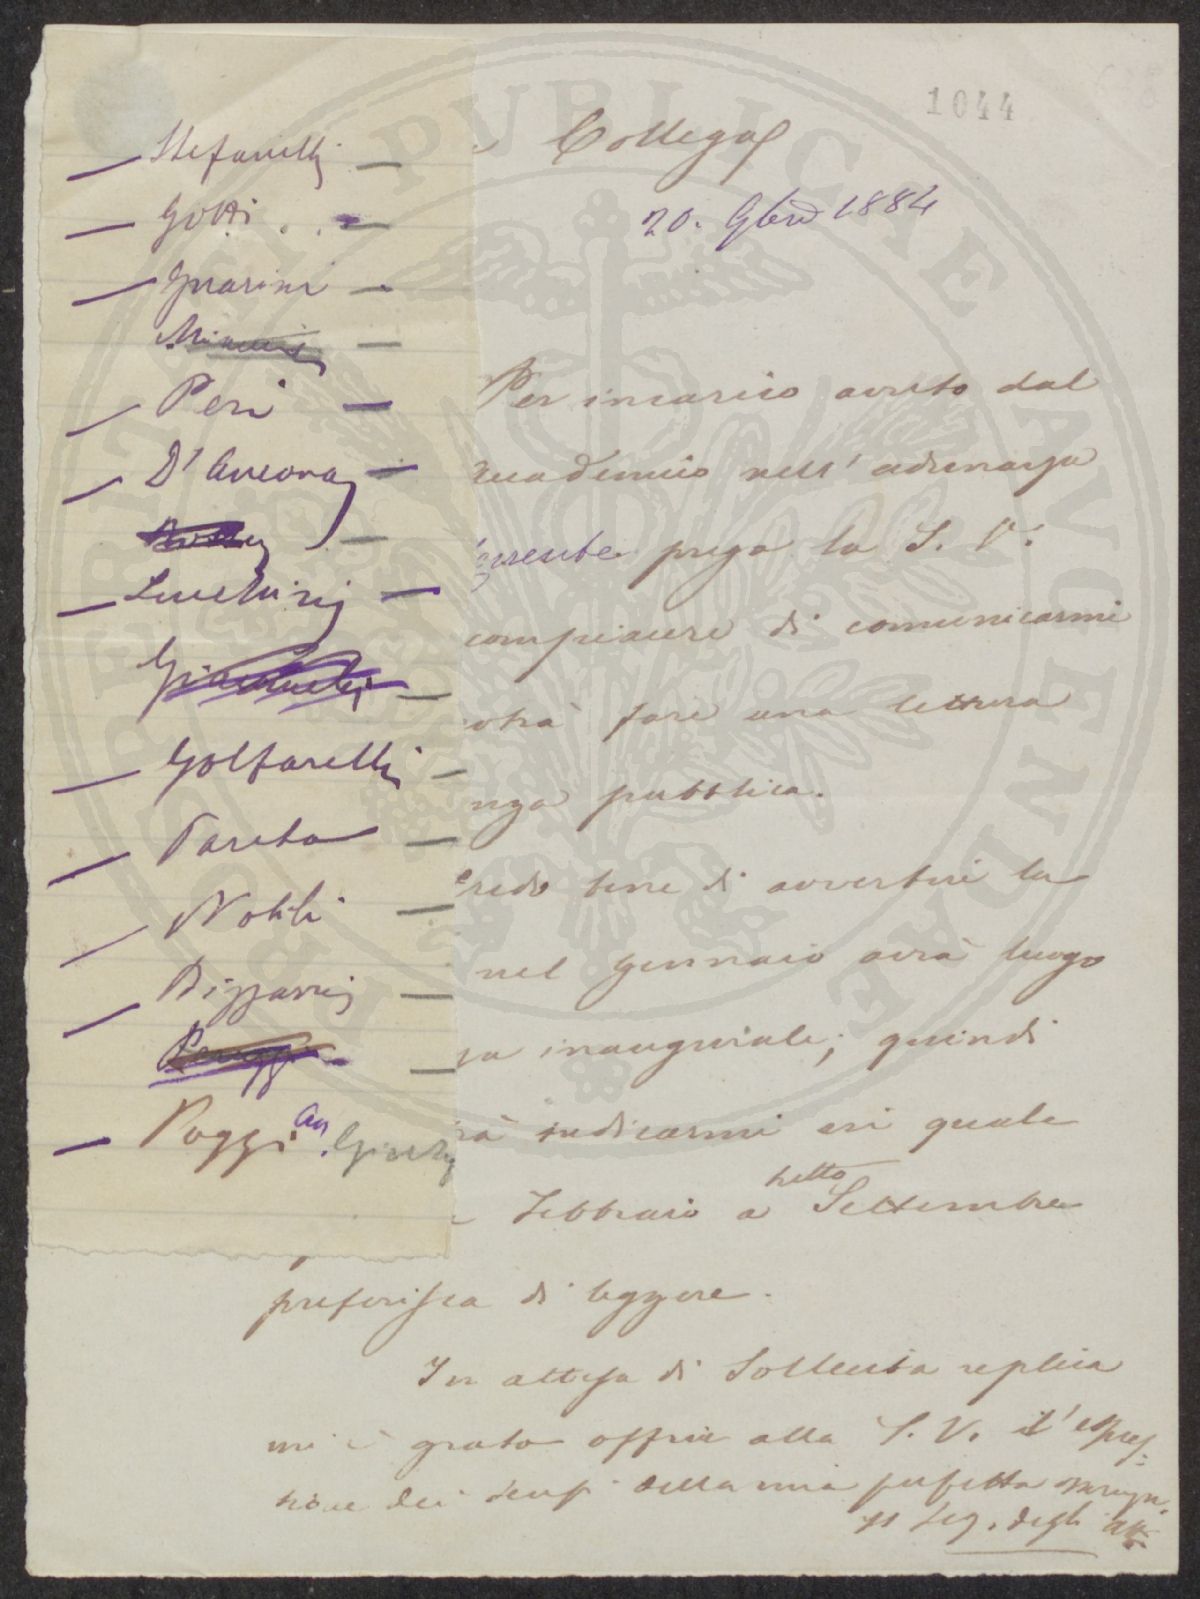 1044
Stefanelli
Gotti
Guarini
Peri
D'Ancona
Luchinij
Golfarelli
Pareto
Nobili
Bizzarrij
Poggi
Collega
20. 9bre 1884
Per incarico avuto dal
accademico nell' adunanza
corrente prega la S. V.
compiacersi di comunicarmi
potrà fare una lettura
nza pubblica.
credo bene di avvertire la
nel gennaio avrà luogo
za inaugurale; quindi
rà indicarmi in quale
Febbraio a Settembre
preferisca di leggere.
In attesa di sollecita replica
mi è grato offrire alla S. V. l'espres-
sione dei sensi della mia perfetta
Il Seg. degli Atti
PROSPERITATI PVBLICAE AVGENDAE